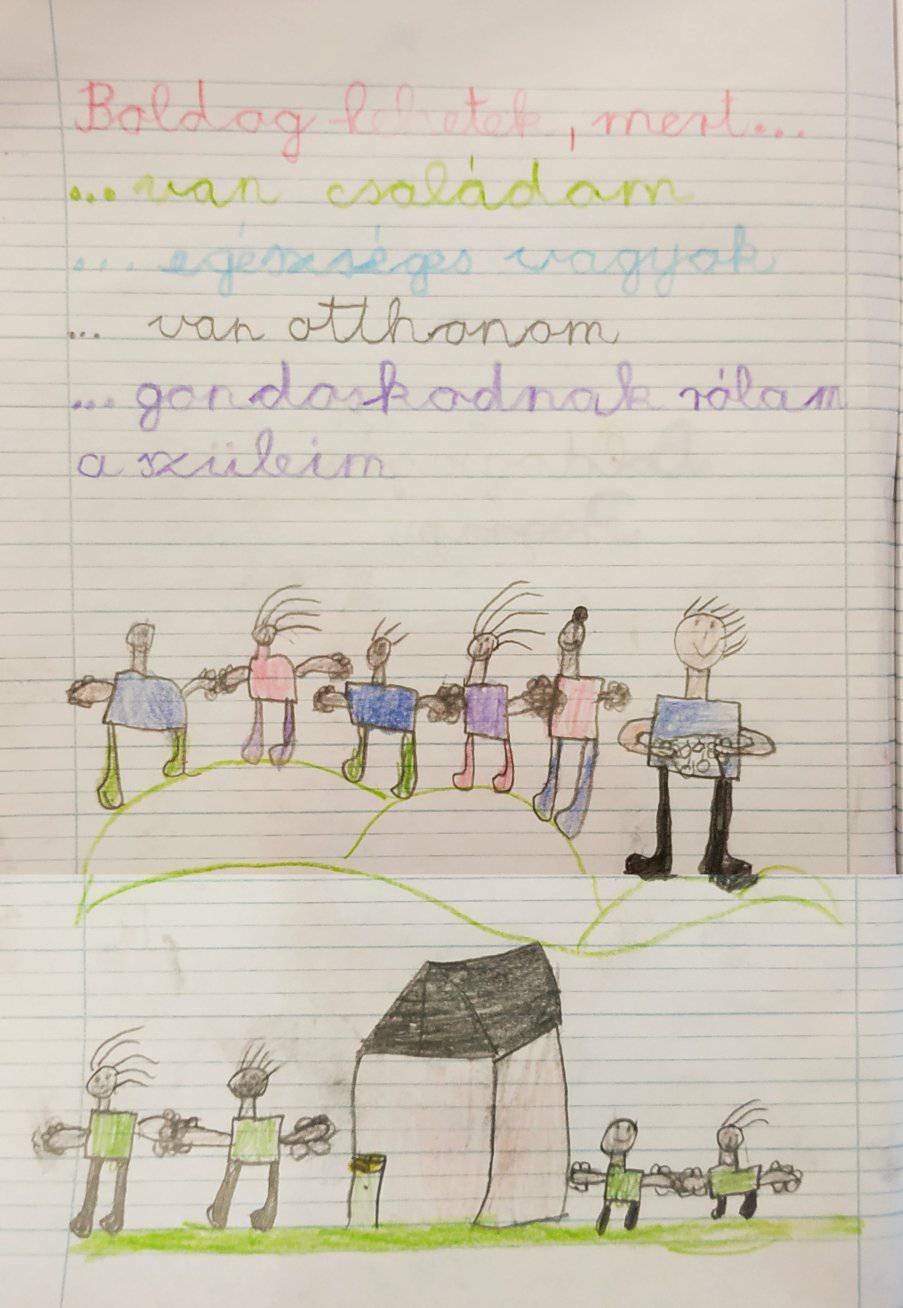 Boldog lehetek, mert...
... van családom
... egészséges vagyok
... van otthonom
... gondoskodnak rólam
a szüleim